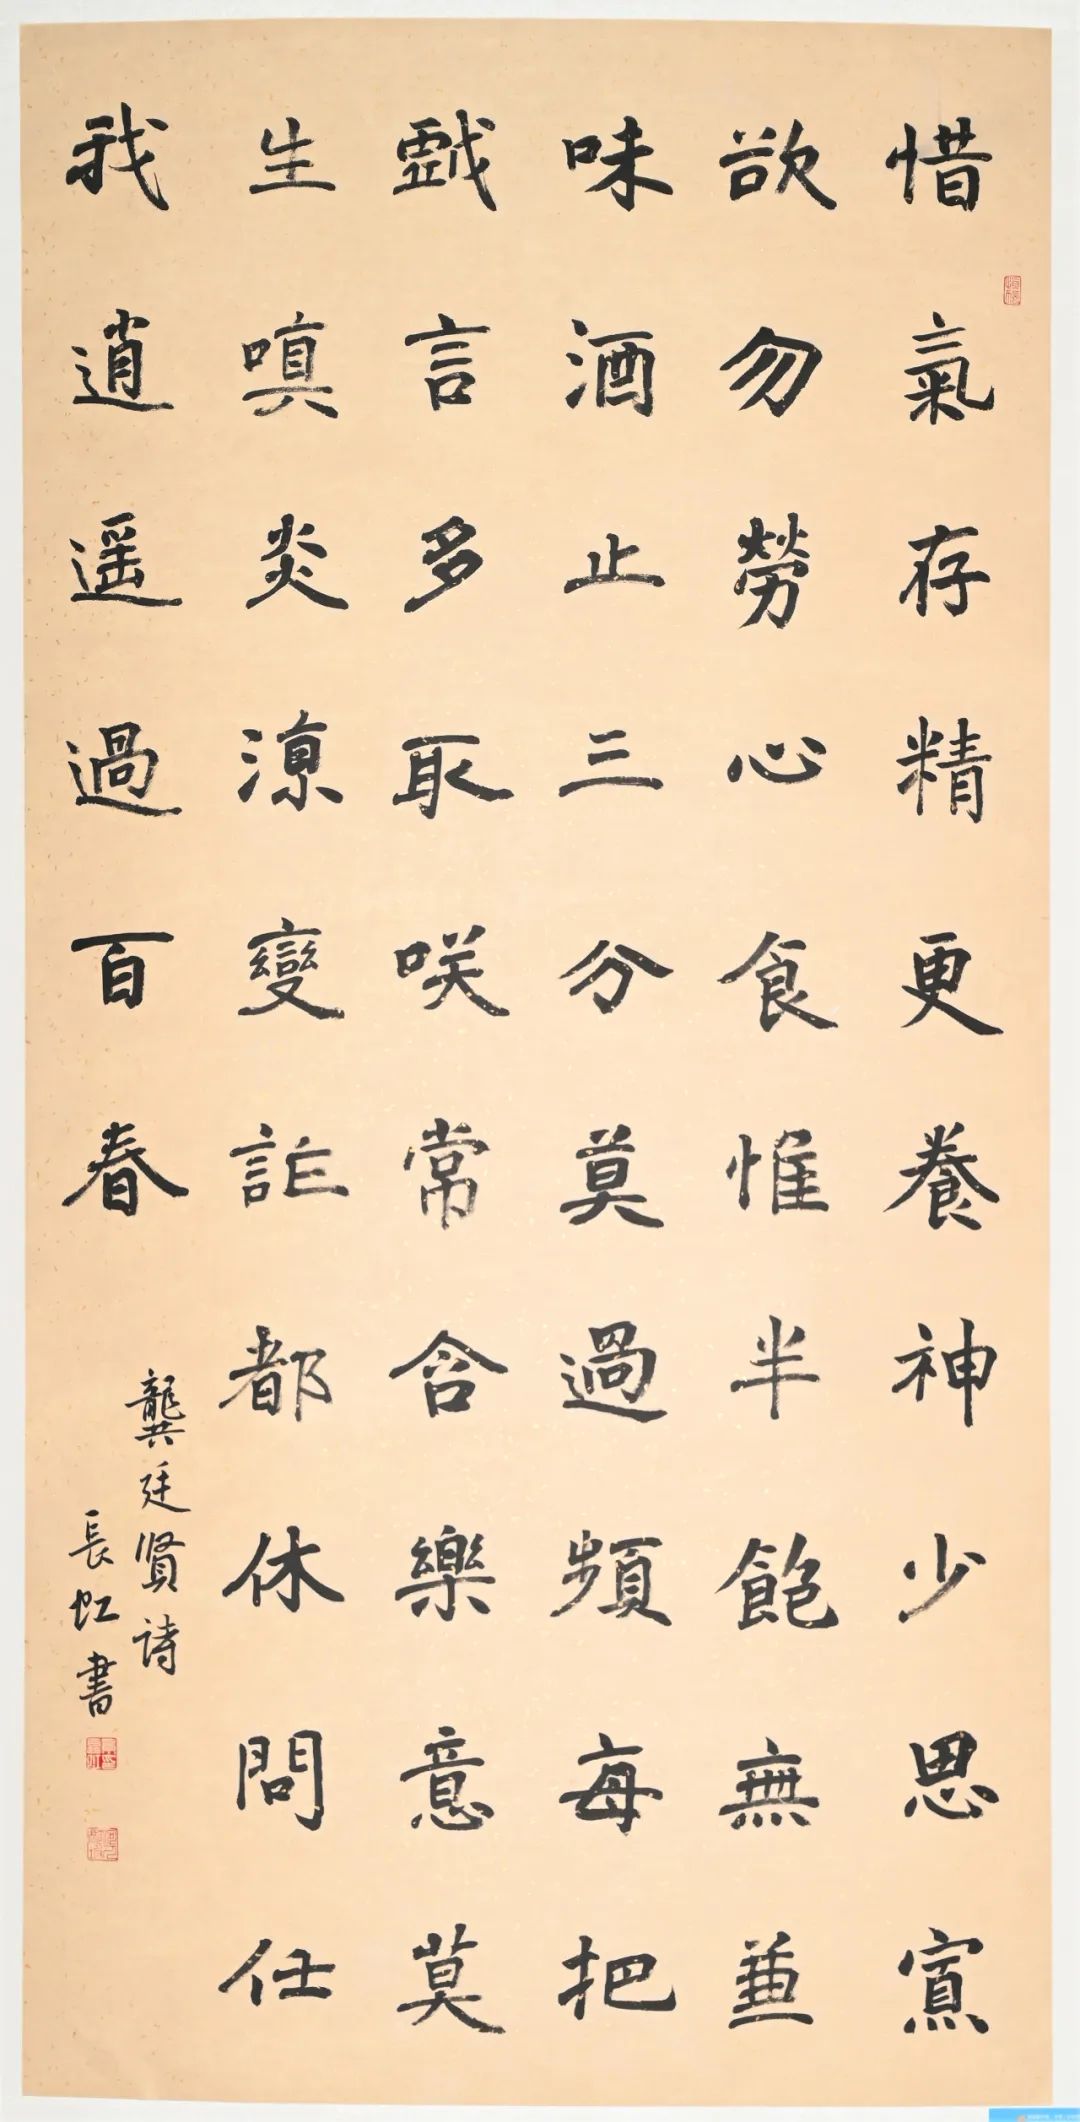 惜氣存精更養神少思寡
欲勿勞心食惟半飽無兼
味酒止三分莫過頻每把
戲言多取咲常含樂意莫
生嗔炎涼變詐都休問任
我逍遥過百春
龔廷贤詩
長虹書